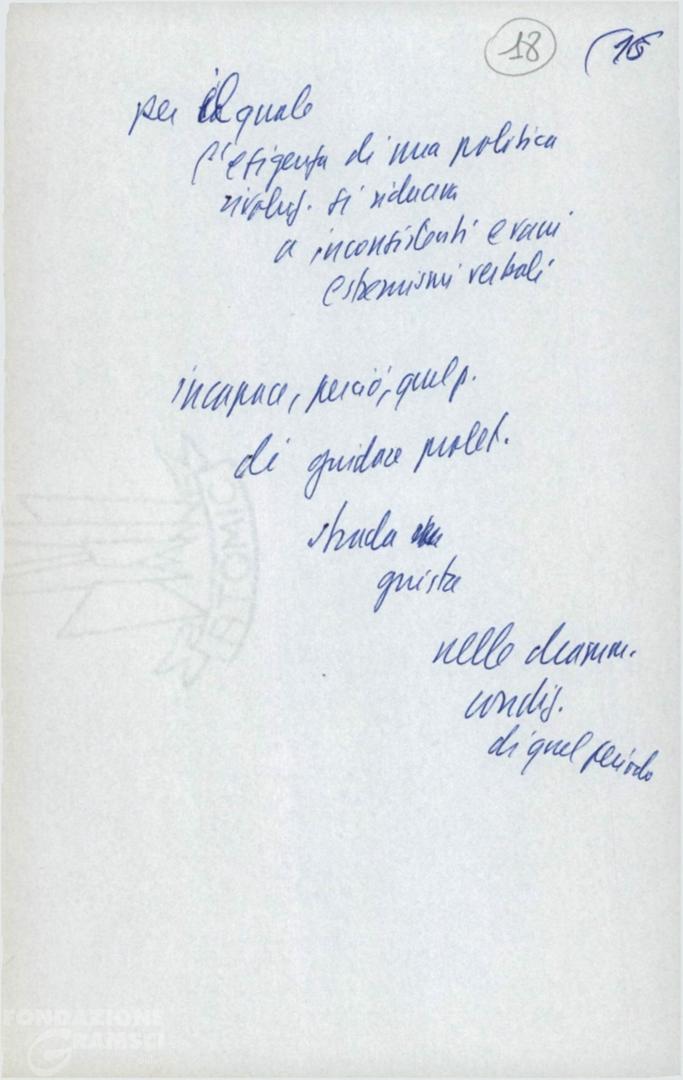 18 (15
per il quale
l'esigenza di una politica
rivoluz. si riduceva
a inconsistenti e vani
estremismi verbali
incapace, perciò, quel p.
di guidare prolet.
strada
giusta
nelle dramm.
condiz.
di quel periodo
FONDAZIONE
GRAMSCI